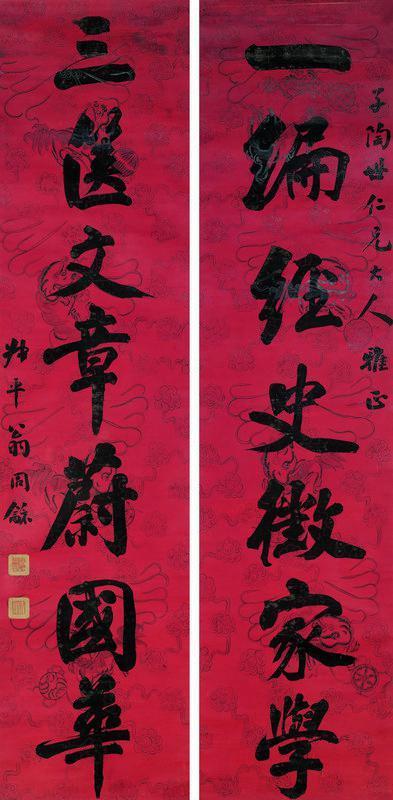 子陶世仁兄大人雅正
一編經史徵家學
三篋文章蔚國華
叔平翁同龢